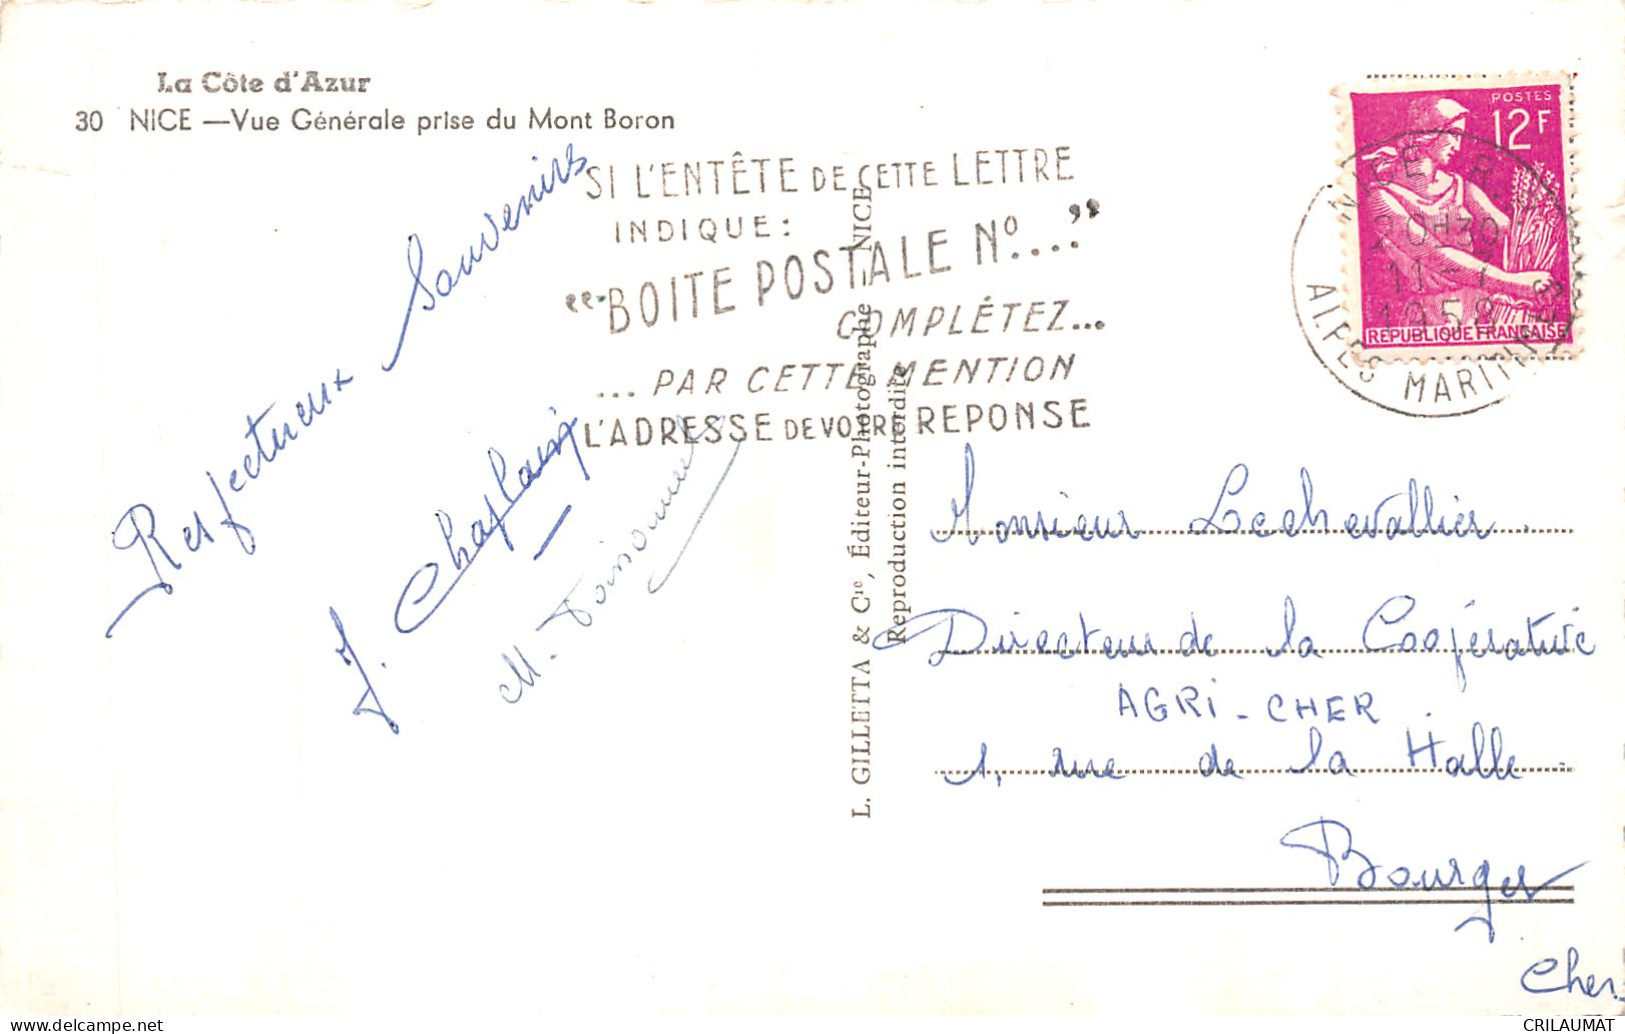 La Côte d'Azur
30 NICE — Vue Générale prise du Mont Boron
SI L'ENTÊTE DE CETTE LETTRE
INDIQUE :
"BOITE POSTALE Nº..."
COMPLÉTEZ...
...PAR CETTE MENTION
L'ADRESSE DE VOTRE REPONSE
POSTES
12F
REPUBLIQUE FRANÇAISE
NICE R.P.
20H30
11-7
1958
ALPES MARITIMES
Respectueux Souvenirs
J. Chaplain
L. GILLETTA & Cie, Éditeur-Photographe - NICE
Reproduction interdite
Monsieur Lechevallier.
Directeur de la Coopérative
AGRI-CHER
1, rue de la Halle
Bourges
Cher.
CRILAUMAT